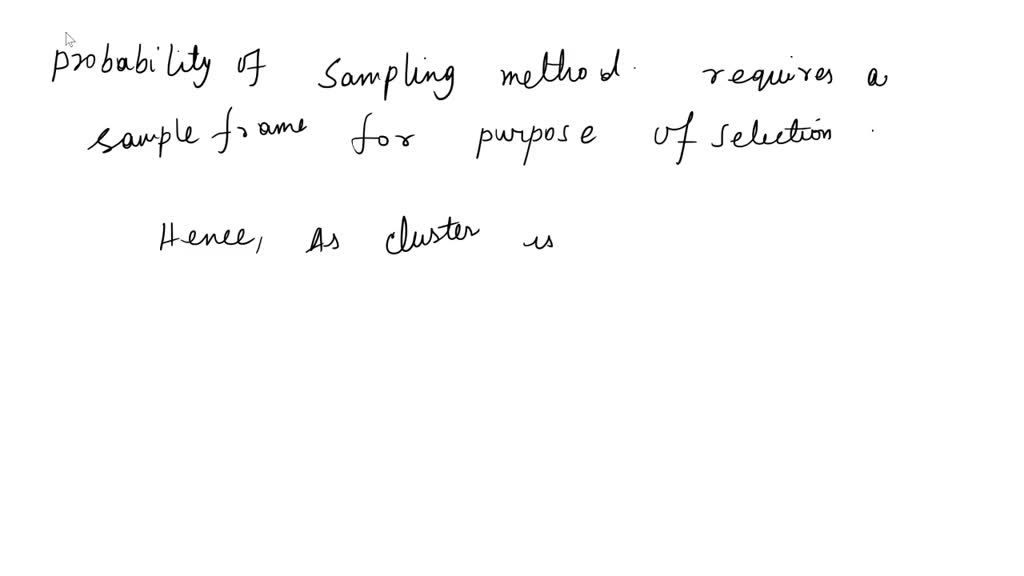 probability of sampling method. requires a
sample frame for purpose of selection.
Hence, As cluster is